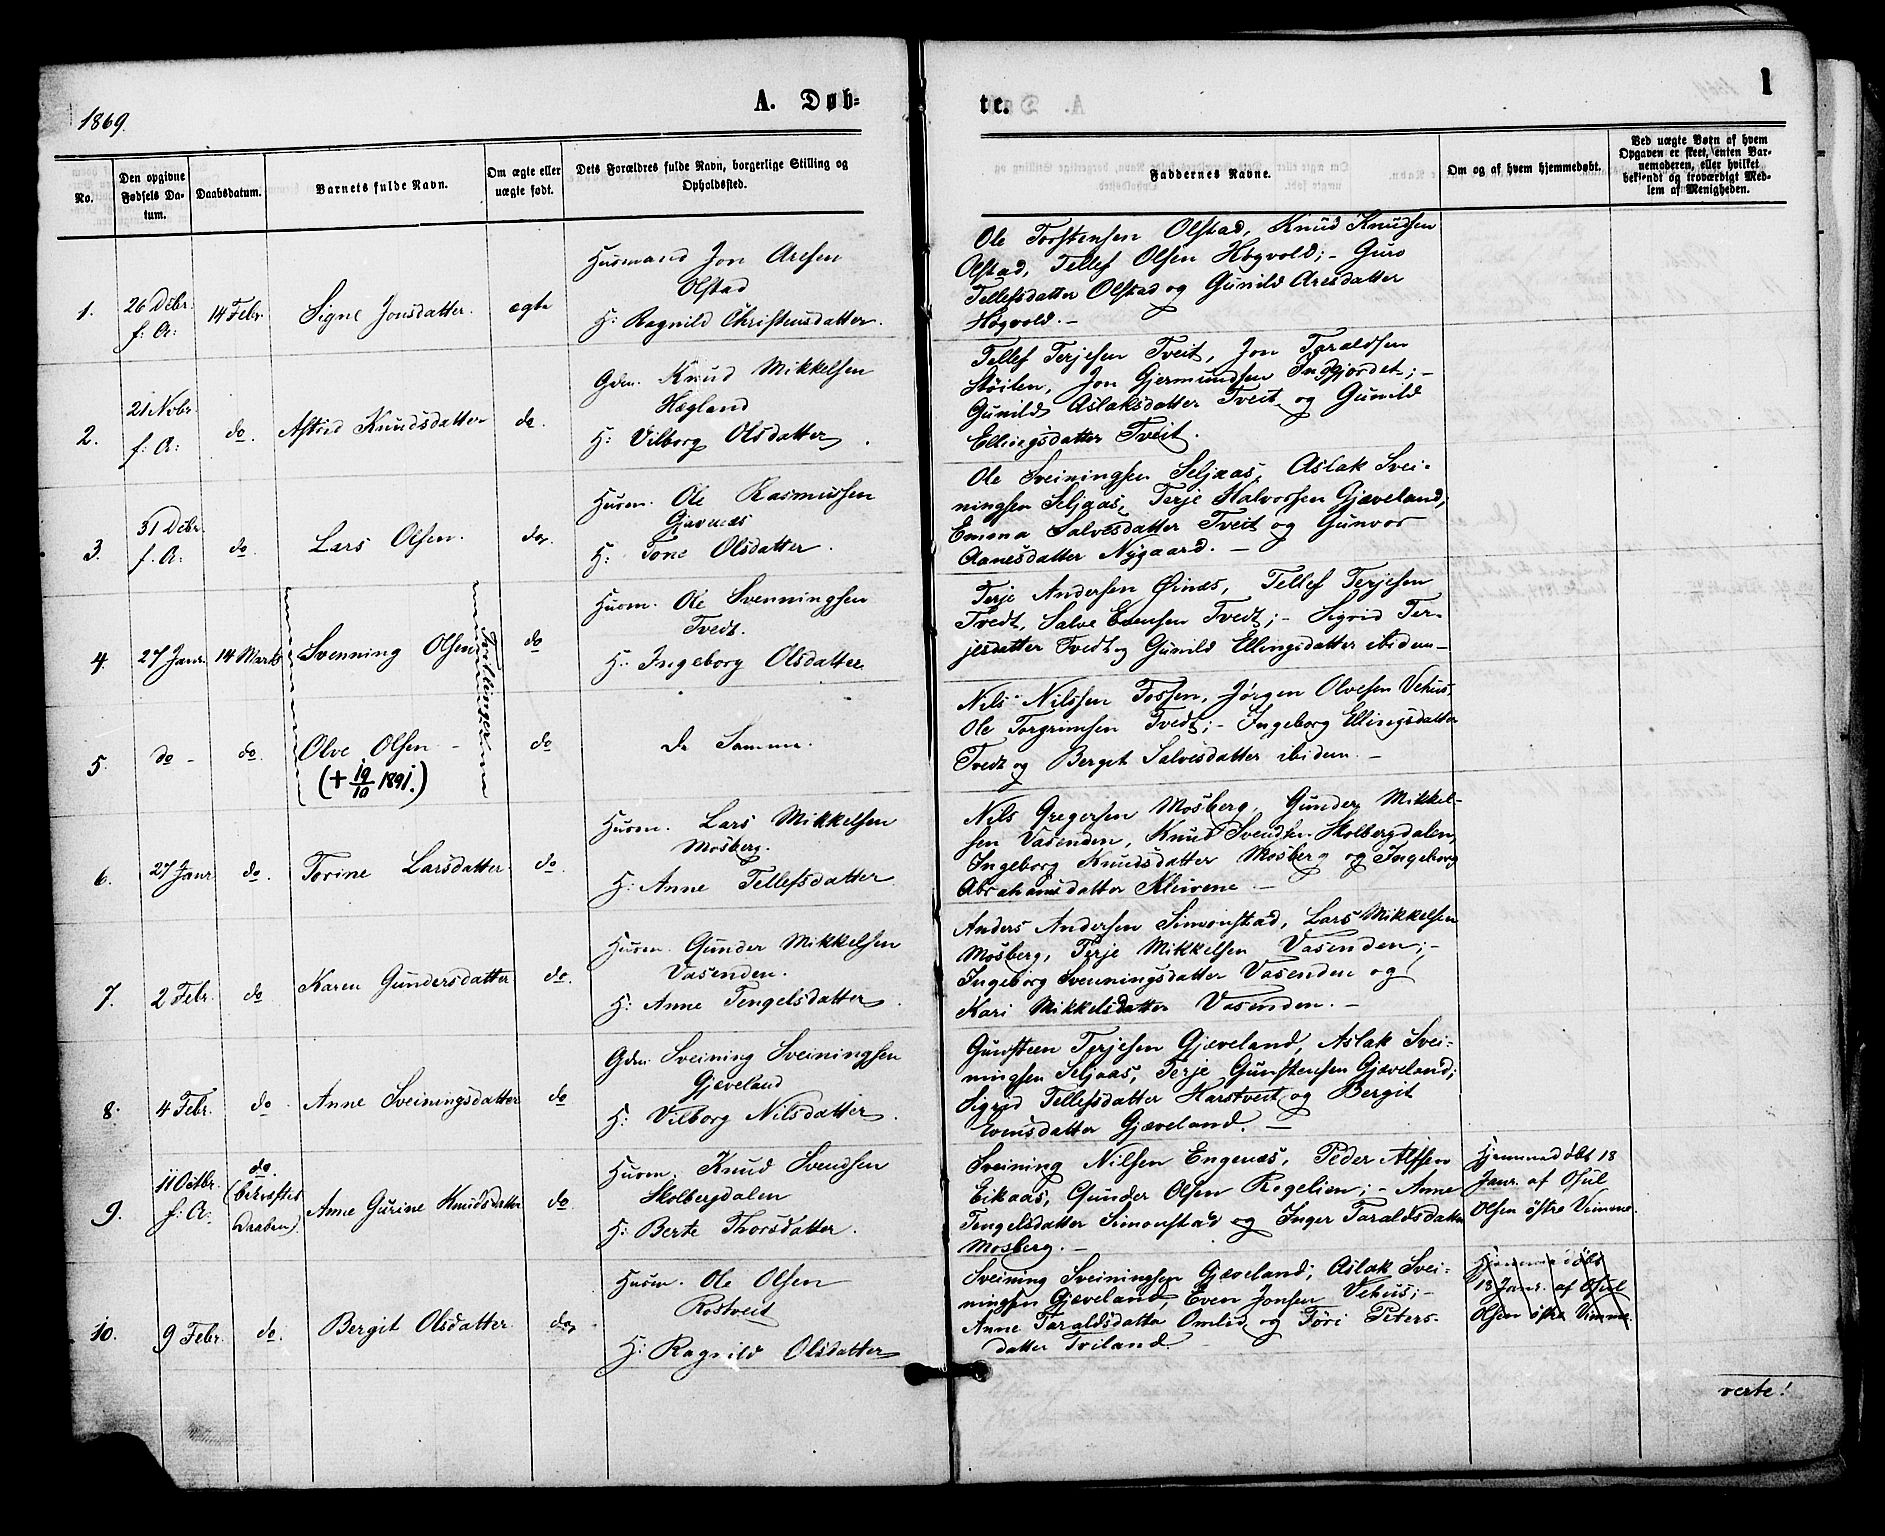 1869.
A. Døb-
te.
1
No.
Den opgivne Fødsels Da-
tum.
Daabsdatum.
Barnets fulde Navn.
Om ægte eller
uægte født.
Dets Forældres fulde Navn, borgerlige Stilling og
Opholdssted.
Faddernes Navne.
Om og af hvem hjemmedøbt.
Ved uægte Børn af hvem
Opgaven er skeet, enten Bar-
nemoderen, eller hvilket
bekjendt og troværdigt Med-
lem af Menigheden.
1.
26 Débr.
f: A:
14 Febr.
Signe Jonsdatter.
ægte
Husmand Jon Aresen
Olstad
H: Ragnild Christensdatter.
Ole Torstensen Olstad, Knud Knudsen
Olstad, Tellef Olsen Høgvold; - Guro
Tellefsdatter Olstad og Gunild Aresdatter
Høgvold. -
2.
21 Novbr.
f: A:
do.
Astrid Knudsdatter
do.
Gdm. Knud Mikkelsen
Hægland
H: Vilborg Olsdatter.
Tellef Terjesen Tveit, Jon Taraldsen
Støilen, Jon Gjermundsen Inggjordet; -
Gunild Aslaksdatter Tveit og Gunild
Ellingsdatter Tveit.
3.
31 Débr.
f. A:
do.
Lars Olsen.
do.
Husm. Ole Rasmussen
Gjevnæs
H: Tone Olsdatter.
Ole Sveiningsen Seljaas, Aslak Svei-
ningsen Seljaas, Terje Halvorsen Gjæveland;
Emma Salvesdatter Tveit og Gunvor
Aanesdatter Nygaard. -
4.
27 Janr.
14 Marts
Svenning Olsen
Tvillinger
do
Husm. Ole Svenningsen
Tvedt.
H: Ingeborg Olsdatter
Terje Andersen Ørnæs, Tellef Terjesen
Tvedt, Salve Evensen Tvedt; - Sigrid Ter-
jesdatter Tvedt og Gunild Ellingsdatter ibidem -
5.
do -
do.
Olve Olsen -
(+ 19/10 1891.)
do
De Samme.
Nils Nilssen Fossen, Jørgen Olvesen Vehus,
Ole Torgrimsen Tvedt; - Ingeborg Ellingsdatter
Tvedt og Berget Salvesdatter ibidem. -
6.
27 Janr
do.
Torine Larsdatter
do.
Husm. Lars Mikkelsen
Mosberg.
H: Anne Tellefsdatter
Nils Gregersen Mosberg, Gunder Mikkel-
sen Vasenden, Knud Svendsen Skolbergdalen,
Ingeborg Knudsdatter Mosberg og Ingeborg
Abrahamsdatter Kleivene -
7.
2 Febr.
do
Karen Gundersdatter
do.
Husm. Gunder Mikkelsen
Vasenden.
H: Anne Tengelsdatter.
Anders Andersen Simonstad, Lars Mikkelsen
Mosberg, Terje Mikkelsen Vasenden; -
Ingeborg Svenningsdatter Vasenden og
Kari Mikkelsdatter Vasenden. -
8.
4 Febr.
do
Anne Sveiningsdatter
do
Gdm Sveining Sveiningsen
Gjæveland
H: Vilborg Nilsdatter.
Gunsteen Terjesen Gjæveland, Aslak Svei-
ningsen Seljaas, Terje Gunstensen Gjæveland;
Sigrid Tellefsdatter Harstveit og Bergit
Evensdatter Gjæveland. -
9.
11 Octbr.
f: A.
do.
(bekræftet
Daaben).
Anne Gurine Knudsdatter
do.
Husm. Knud Svendsen
Skolbergdalen
H: Berte Thorsdatter.
Sveining Nilsen Engenæs, Peder Alfsen
Eikaas, Gunder Olsen Rigelien; - Anne
Tengelsdatter Simonstad og Inger Taraldsdatter
Mosberg. -
Hjemmedøbt 18
Janr. af Osul
Olsen østre Vimme.
10.
9 Febr.
do.
Bergit Olsdatter.
do.
Husm. Ole Olsen
Rostveit
H: Ragnild Olsdatter
Sveining Sveiningsen Gjæveland, Aslak Svei-
ningsen Gjæveland, Even Jonsen Vehus; -
Anne Taraldsdatter Omlid og Tøri Peters-
datter Tveland.
Hjemmedøbt
18 Janr. af Osul
Olsen østre Vimme.
verte!